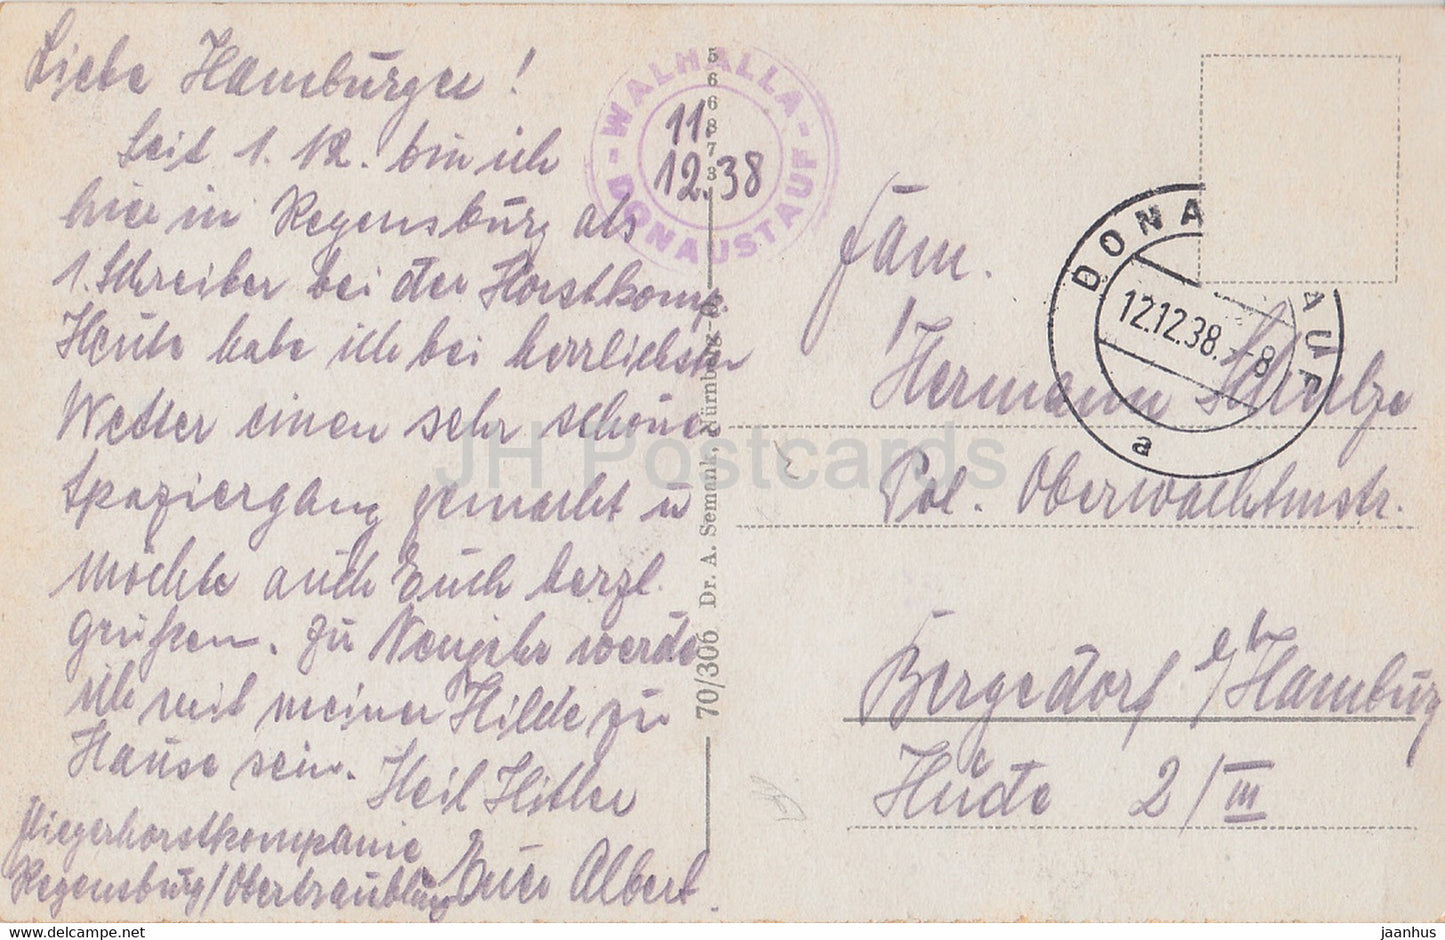 Liebe Hamburger!
Seit 1. 12. bin ich
hier in Regensburg als
1. Schreiber bei der Horstkomp.
Heute habe ich bei herrlichster
Wetter einen sehr schönen
Spaziergang gemacht u
möchte auch Euch herzl.
grüßen. Zu Neujahr werde
ich mit meiner Hilde zu
Hause sein. Heil Hitler
Fliegerhorstkompanie
Regensburg/Obertraubling
Euer Albert.
WALHALLA - DONAUSTAUF -
11.
12.38
5668873
70/306 Dr. A. Semank, Nürnberg-O
DONAUSTAUF
12.12.38.-8
a
Fam.
Hermann Schulze
Pol. Oberwachtmstr.
Bergedorf b/Hamburg
Hüde 2/III
JH Postcards
© www.hippostcard.com
jaanhus